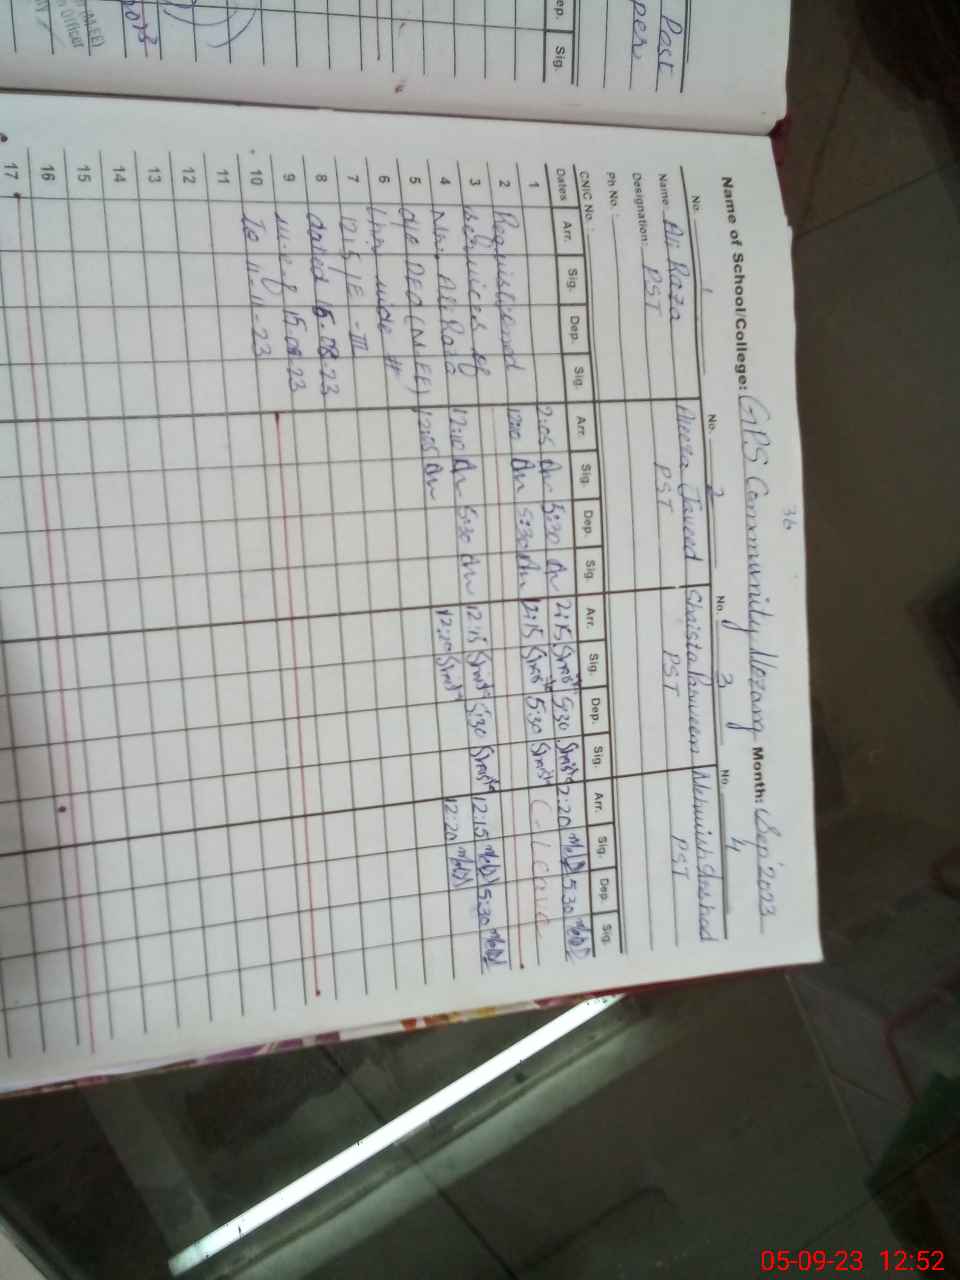 36
Name of School/College: GPS Community Mozang Month: Sep' 2023
No. 1 No. 2 No. 3 No. 4
Name: Ali Raza Javeed Shaista Parveen Mehwish Arshad
Designation: PST PST PST PST
Ph No.:
CNIC No.:
Dates Arr. Sig. Dep. Sig. Arr. Sig. Dep. Sig. Arr. Sig. Dep. Sig. Arr. Sig. Dep. Sig.
1 2:05 5:30 2:15 5:30 2:20 5:30
2 Requisitioned 12:10 5:30 12:15 5:30 Leave
3 services of 12:10 5:30 12:15 5:30 12:15 5:30
4 Mr. Ali Raza 12:05 12:20 12:20
5 O/O DEO (M.EE)
6 Lhr, vide #
7 1215/E-III
8 dated 15.08.23
9 w.e.f 15.08.23
10 To 11-11-23
11
12
13
14
15
16
17
Post
per.
ep. Sig.
Officer
05-09-23 12:52